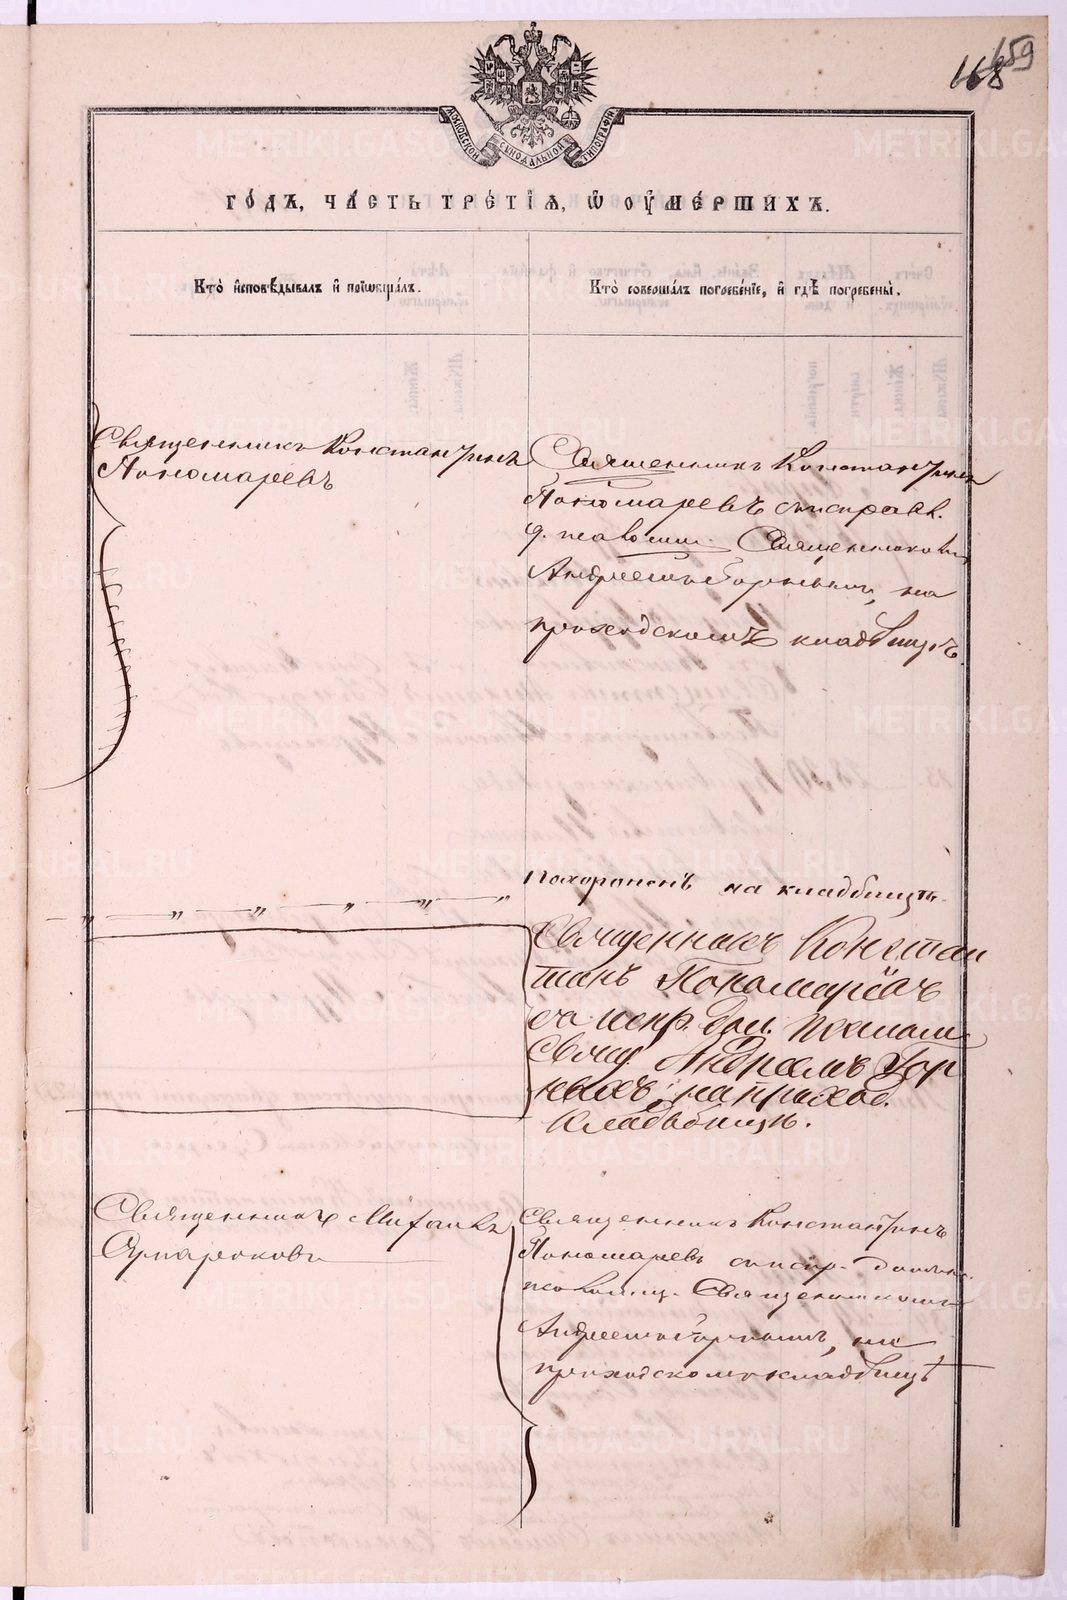 168
159
МОСКОВСКОЙ СѴНОДАЛЬНОЙ ТИПОГРАФІИ
ГО́ДЪ, ЧА́СТЬ ТРЕ́ТІѦ, Ѡ҆ ОУ҆МЕ́РШИХЪ.
Кто̀ и҆сповѣ́дывалъ и҆ прїѡбща́лъ.
Кто̀ соверша́лъ погребе́нїе, и҆ гдѣ̀ погребены̀.
Священникъ Константинъ
Пономаревъ
Священникъ Константинъ
Пономаревъ съ исправл.
д. псаломщ. Священникомъ
Андреемъ Горныхъ, на
приходскомъ кладбищѣ.
похороненъ на кладбищѣ.
Священникъ Констан
тинъ Пономарёвъ
съ испр. дол. псалом
Свящ. Андреемъ Гор
ныхъ; на приход.
кладбищѣ.
Священникъ Михаилъ
Священникъ Константинъ
Пономаревъ съ испр. должн.
псаломщ. Священникомъ
Андреемъ Горныхъ, на
приходскомъ кладбищѣ
METRIKI.GASO-URAL.RU